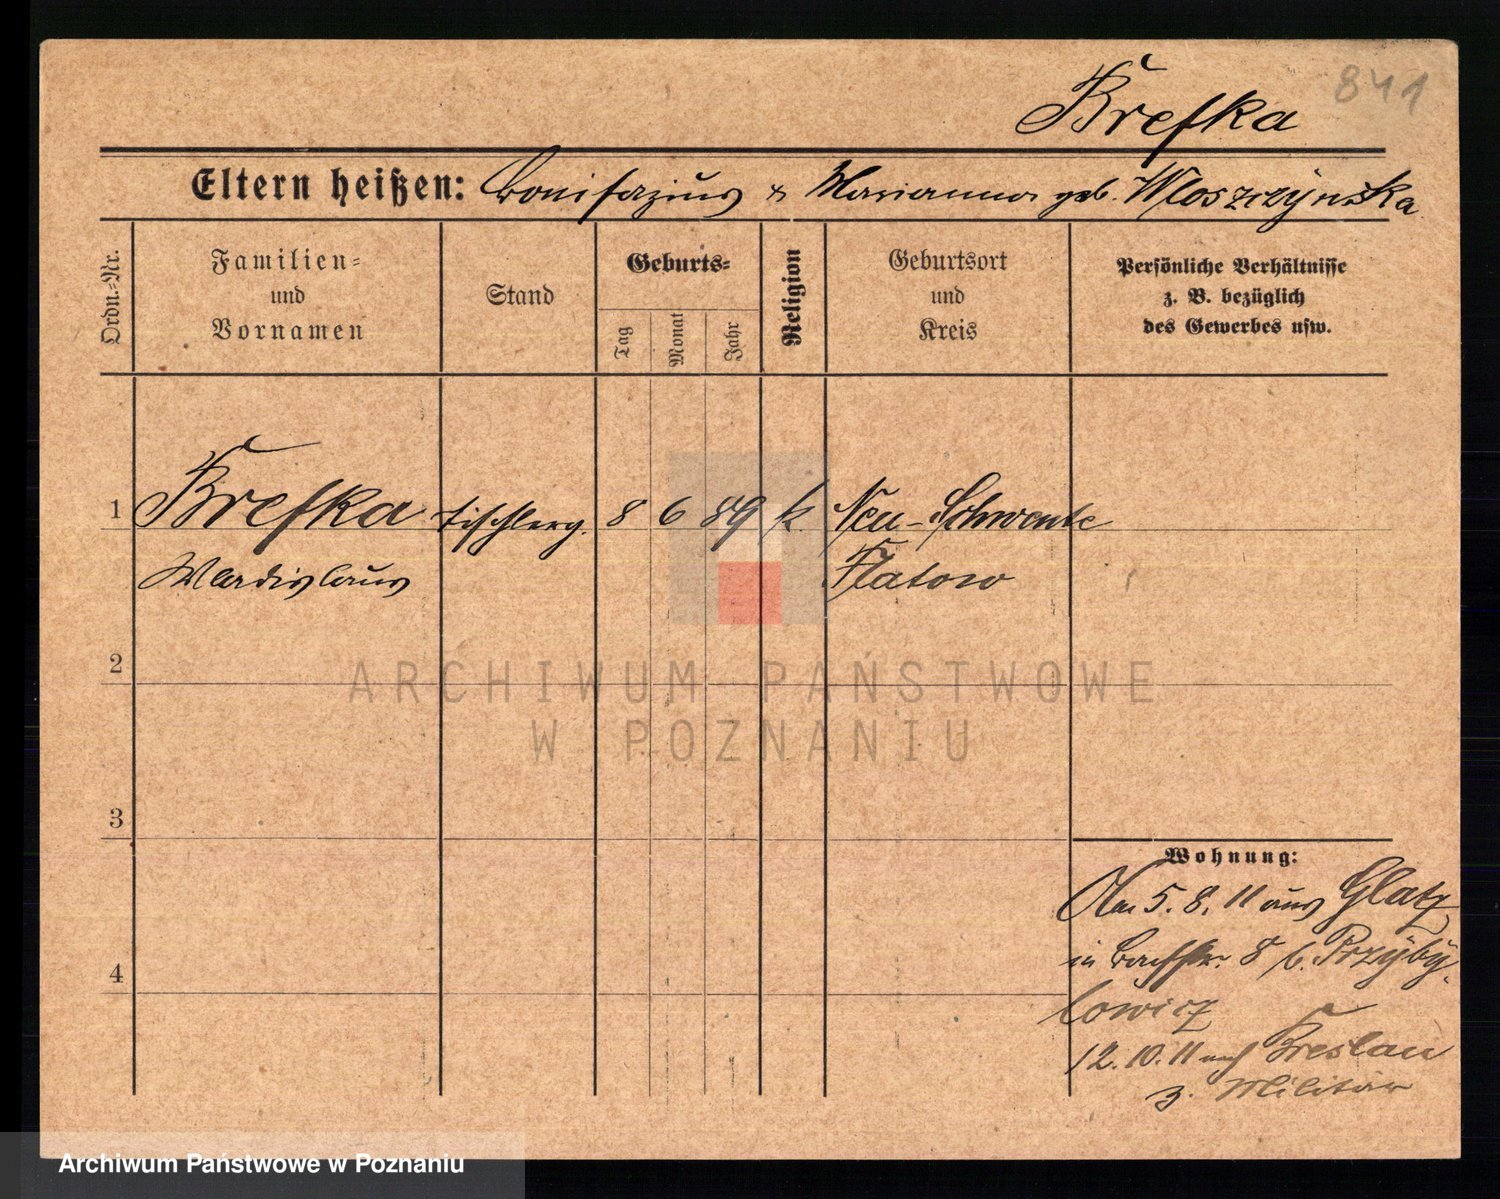 841
Brefka
Eltern heißen: Bonifazius & Marianna geb. Wloszczynska
Ordn.-Nr.
Familien- und Vornamen
Stand
Geburts-
Tag
Monat
Jahr
Religion
Geburtsort und Kreis
Persönliche Verhältnisse z. B. bezüglich des Gewerbes usw.
1 Brefka tischlerg. 8 6 89 k. Neu-Schwente
Wladislaus Flatow
2
3
4
Wohnung:
Am 5.8.11 aus Glatz
in 8 b. Przyby-
lowicz
12.10.11 nach Breslau
z. Militär
ARCHIWUM PAŃSTWOWE
W POZNANIU
Archiwum Państwowe w Poznaniu